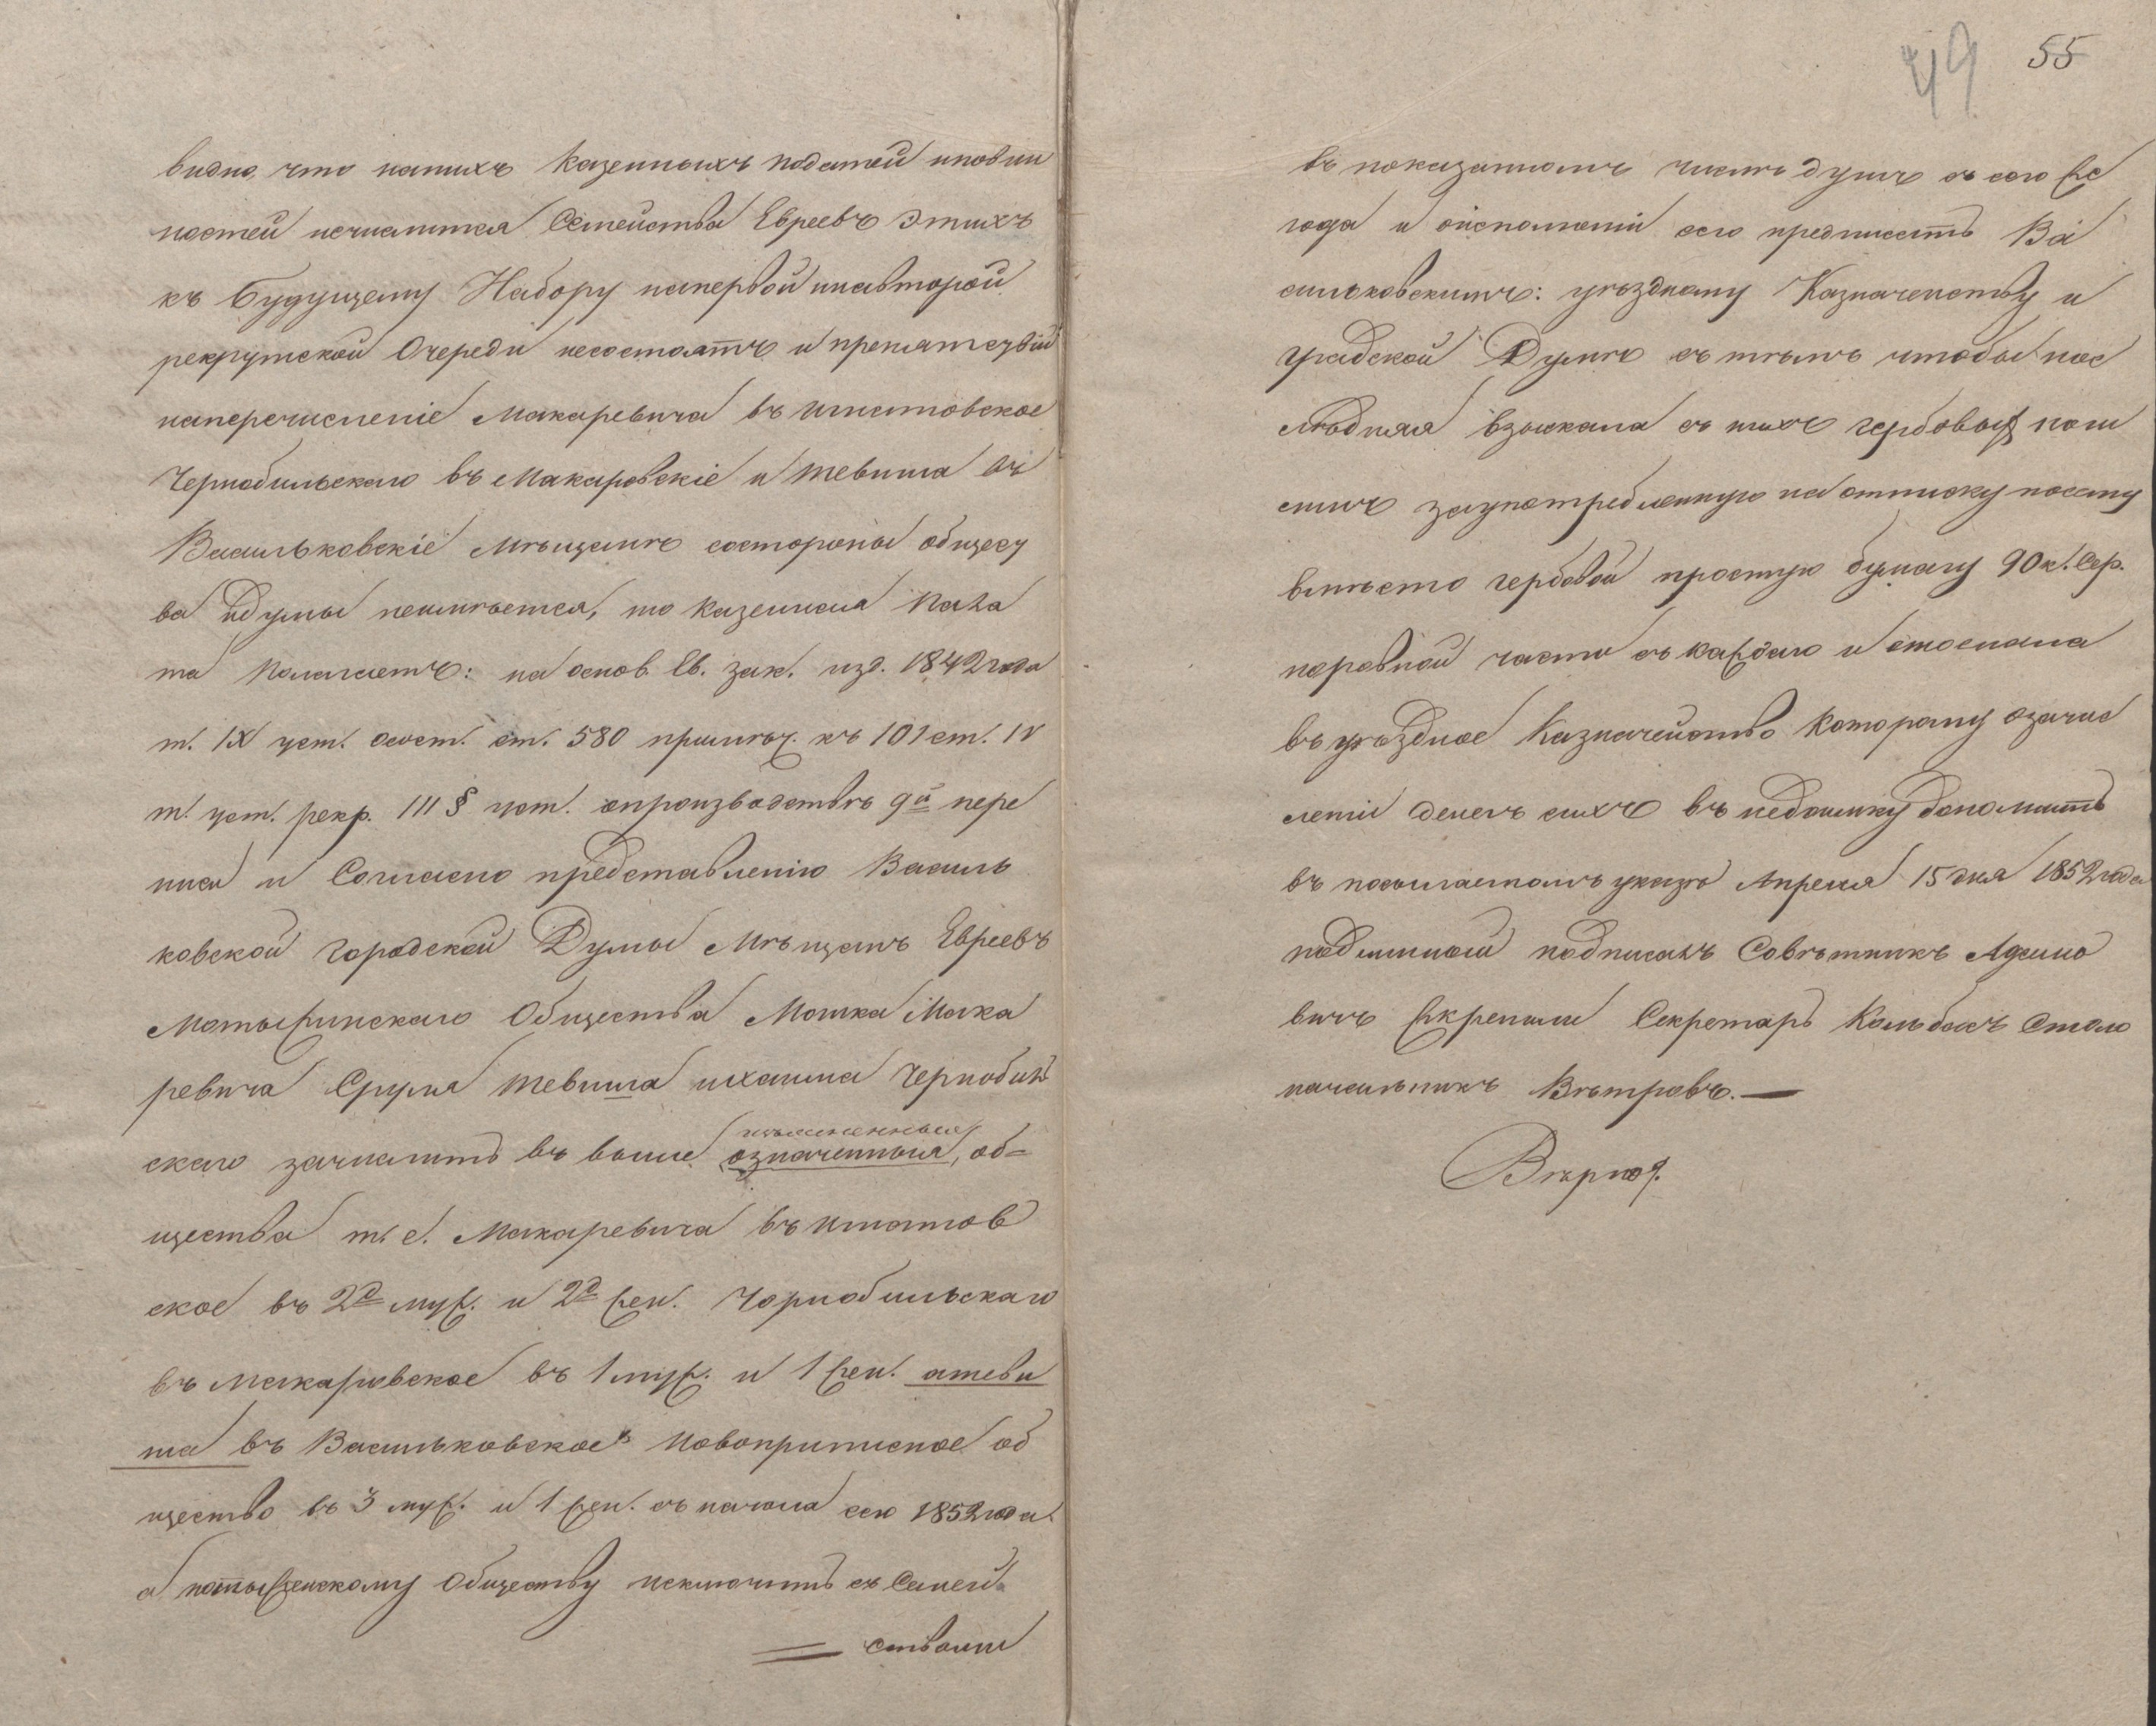 видно, что на нихъ казенныхъ податей и повин
ностей нечислится Семейства Евреевъ Этихъ
къ будущему Набору на первой и на второй
рекрутской Очереди несостоятъ и препятсвій
на перечисленіе Макаревича въ Игнатовское
Чернобильскаго въ Макаровскіе и тевиша въ
Васильковскіе Мѣщане состороны общесу
ва идумы неимѣется, то казенная пала
та полагаетъ: на основ. Св. зак. изд. 1842 года
т. IX уст. осост. ст. 580 примѣч. къ 101 ст. IV
т. уст. рекр. 111 § уст. опроизводствѣ 9й пере
писи и Согласно представленію Василь
ковской городской Думы Мѣщанъ Евреевъ
Мотыжинскаго Общества Мошка Мака
ревича Сруля тевиша ихаима Чернобиль
скаго зачислить въ выше означенныя, об=
щества т. е. Макаревича въ Игнатов
ское въ 2д муж. и 2д жен. Чорнобильскаго
въ Макаровское въ 1 муж. и 1 жен. атеви
ша въ Васильковское новоприписное об
щество въ 3 муж. и 1 жен. съ начала сего 1852 года
а помотыженскому Обществу исключить съ Семей
ствами
49 55
въ показанномъ числѣ душъ съ сего же
года и оисполненіи сего предписать Ва
сильковскимъ: уѣздному Казначейству и
градской Думѣ съ тѣмъ чтобы пос
лѣдняя взыскала съ нихъ гербовых пош
линъ заупотребленную на отписку посему
вмѣсто гербовой простую бумагу 90 к. Сер.
поровной части съ каждаго и отослала
въ уѣздное Казначейство которому озачис
леніи денегъ сихъ въ недоимку дополнить
въ посылаемомъ указѣ Апреля 15 дня 1852 года
подлинной подписалъ Совѣтникъ
вичъ Скрепили Секретарь Кольбахъ Столо
начальникъ Вѣтровъ.—
Вѣрно.